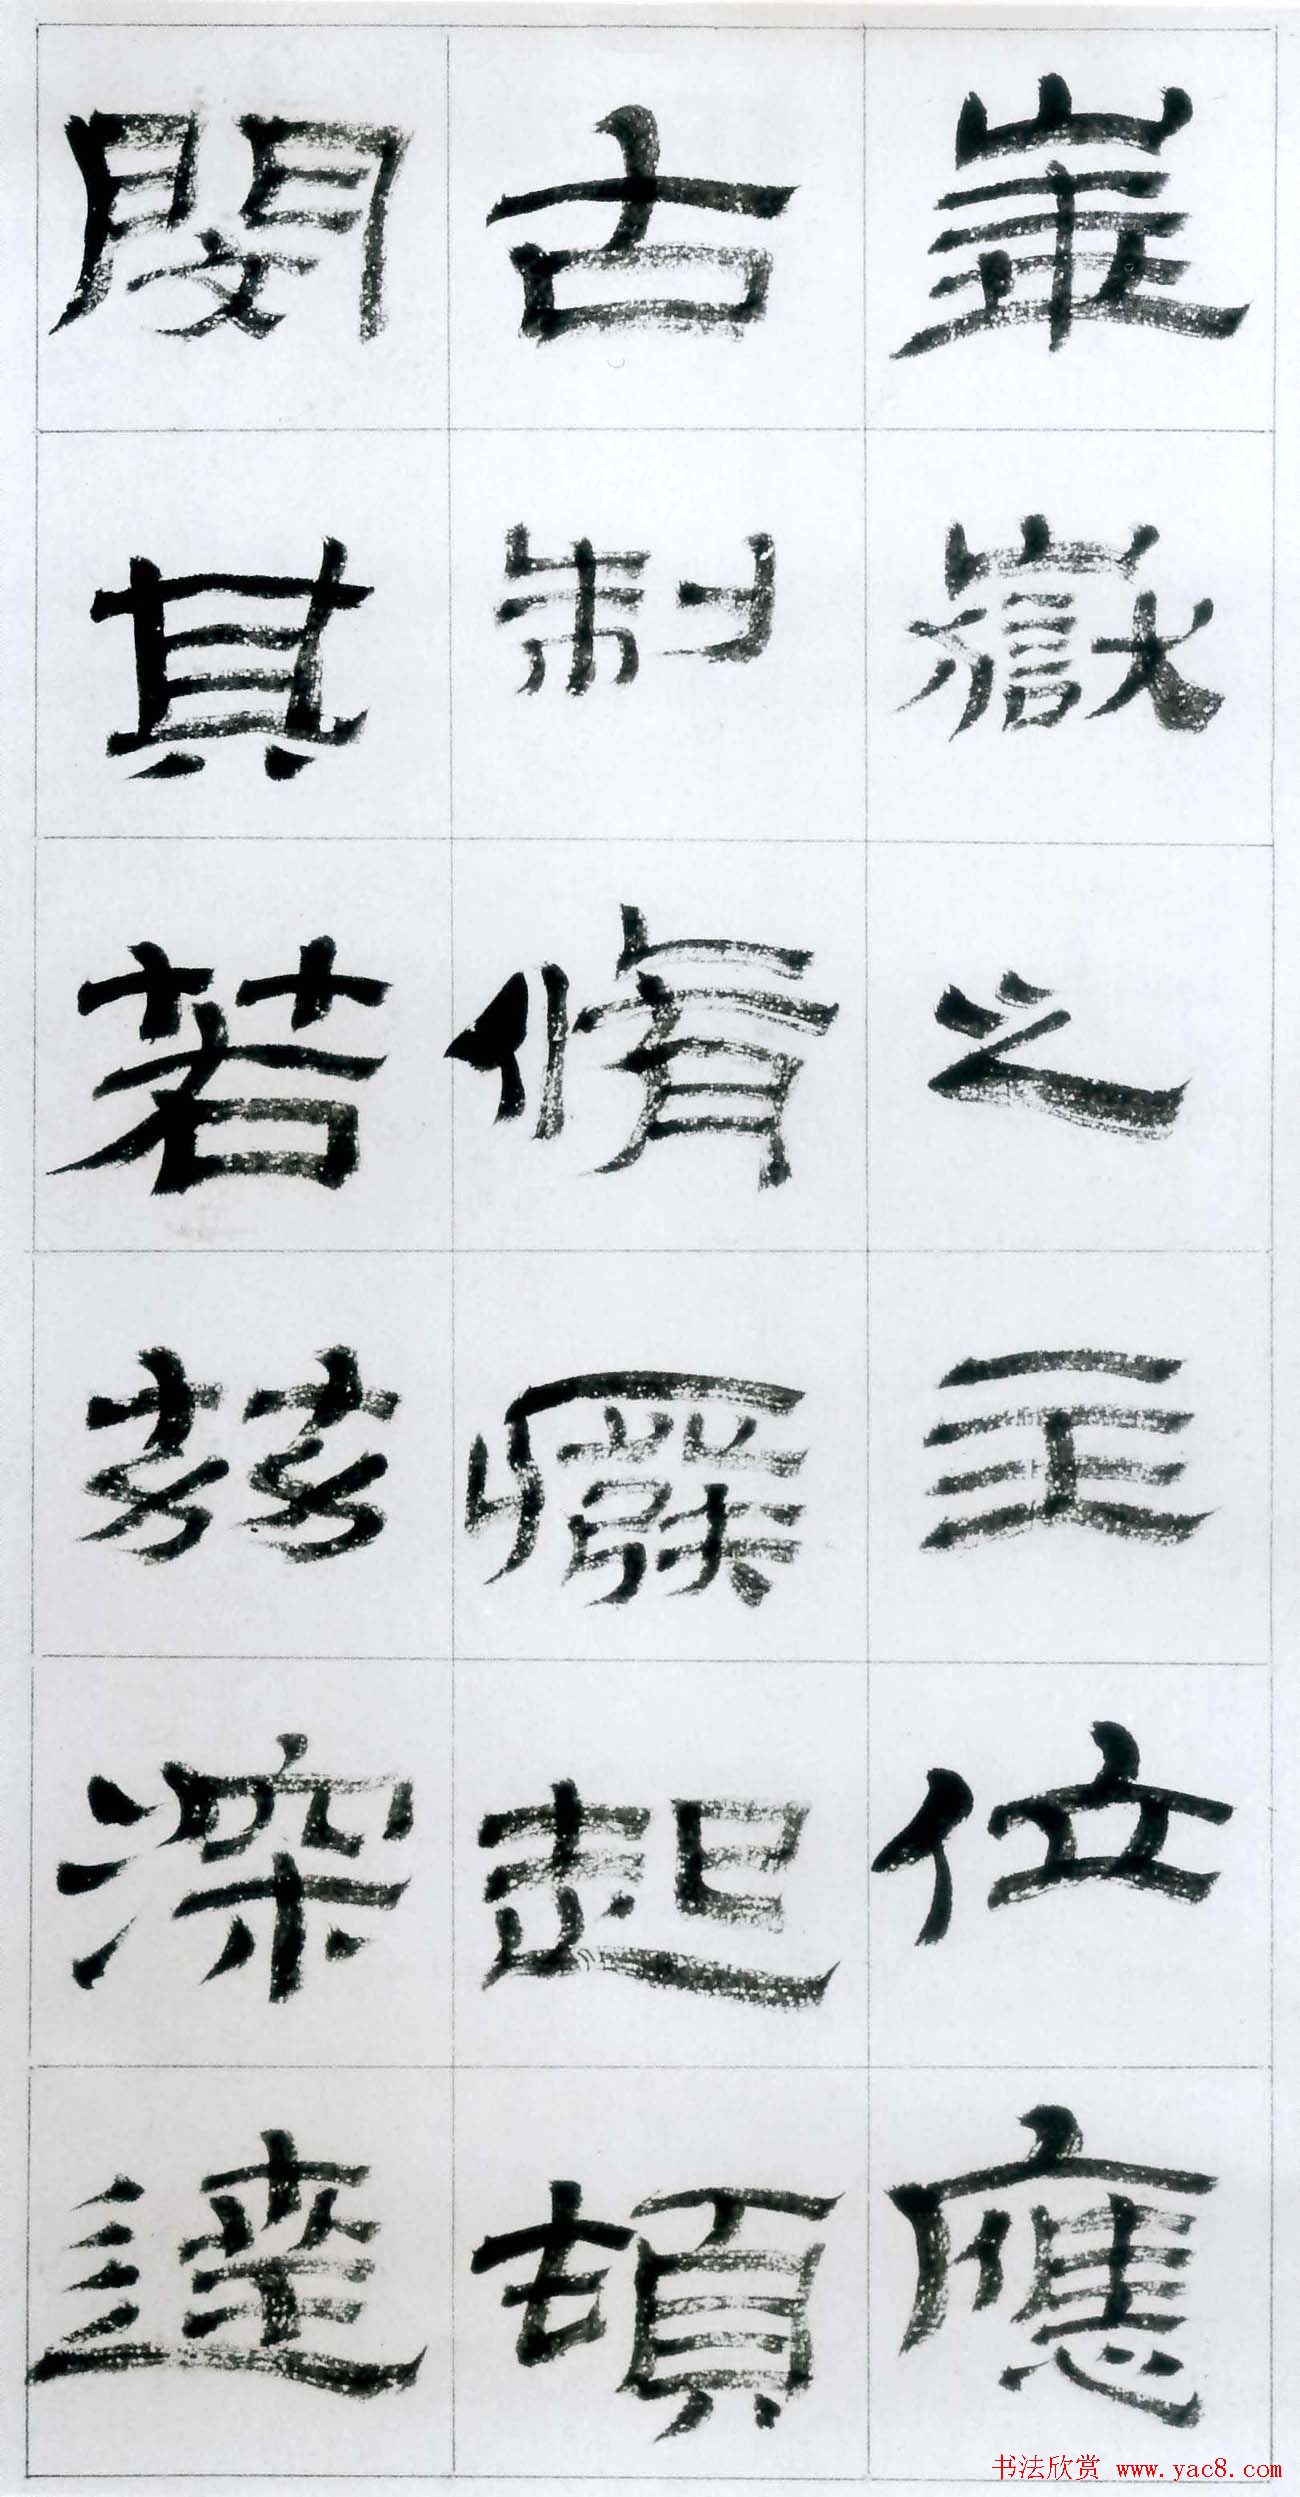 崋嶽之主位應
古制脩癈起頓
閔其若兹深達
书法欣赏 www.yac8.com